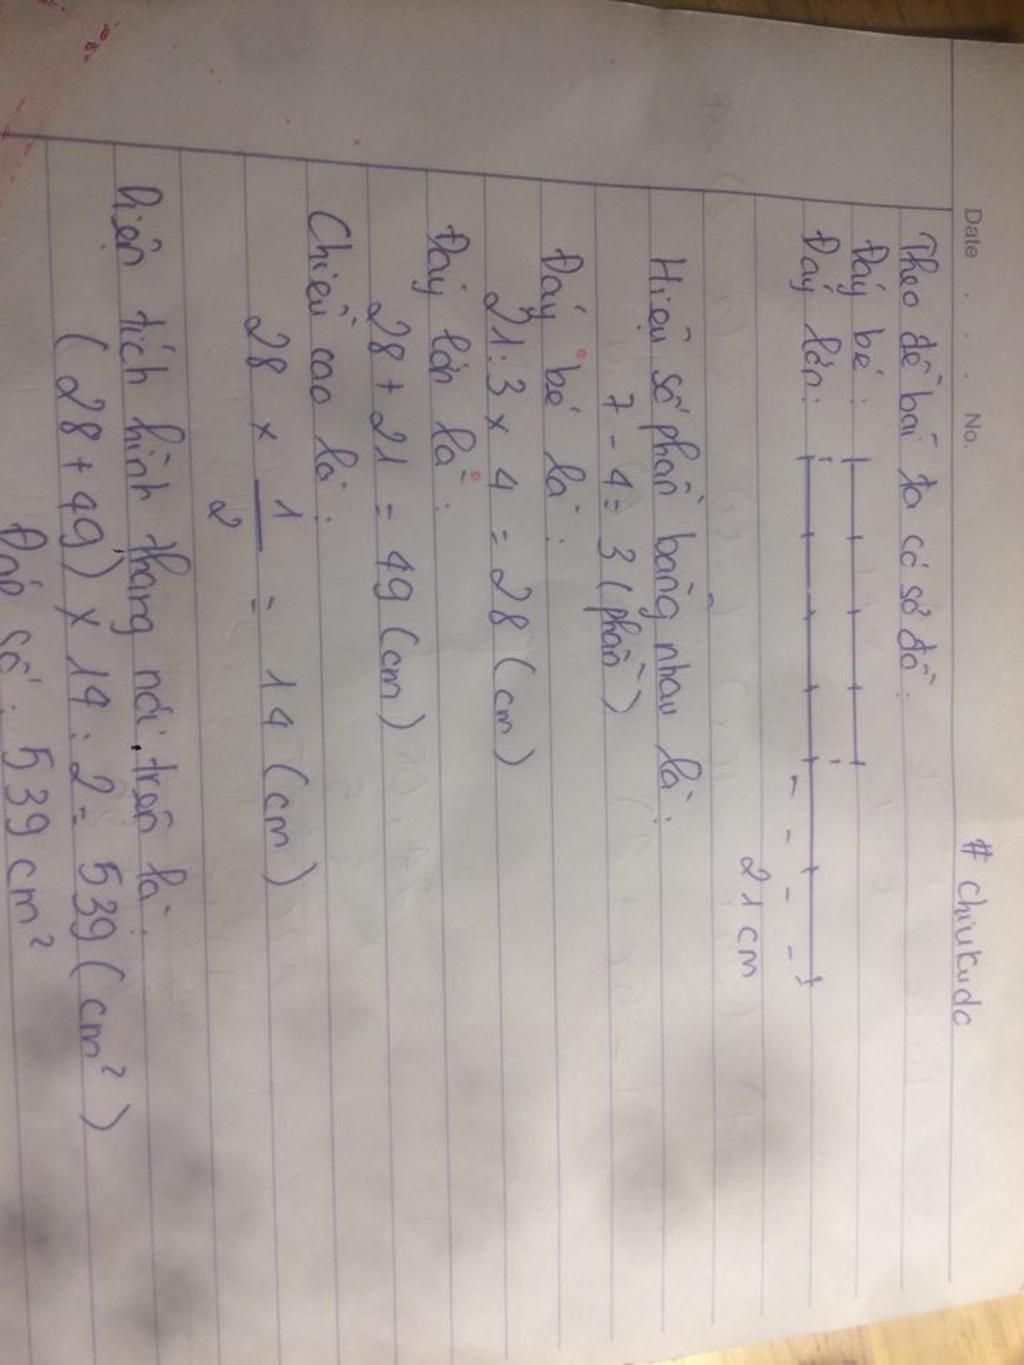 Date . . . No.
# chiukudc
Theo đề bài ta có sơ đồ:
Đáy bé:
Đáy lớn:
21 cm
Hiệu số phần bằng nhau là:
7 - 4 = 3 (phần)
Đáy bé là:
21 : 3 x 4 = 28 (cm)
Đáy lớn là:
28 + 21 = 49 (cm)
Chiều cao là:
28 x 1/2 = 14 (cm)
Diện tích hình thang nói trên là:
(28 + 49) x 14 : 2 = 539 (cm²)
Đáp số: 539 cm²